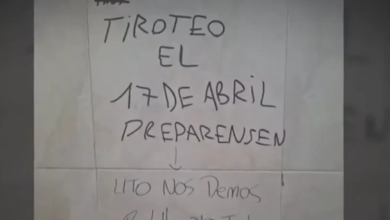 TiROTEO
EL
17 DE ABRIL
PREPARENSEN
NOS Demos